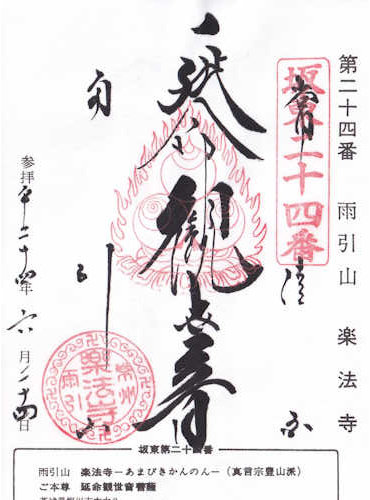 第二十四番 雨引山 楽法寺
坂東二十四番
延命観世音
雨引山
参拝 平二十四年 六月二十四日
常州
楽法寺
雨引
坂東第二十四番
雨引山 楽法寺−あまびきかんのん−(真言宗豊山派)
ご本尊 延命観世音菩薩